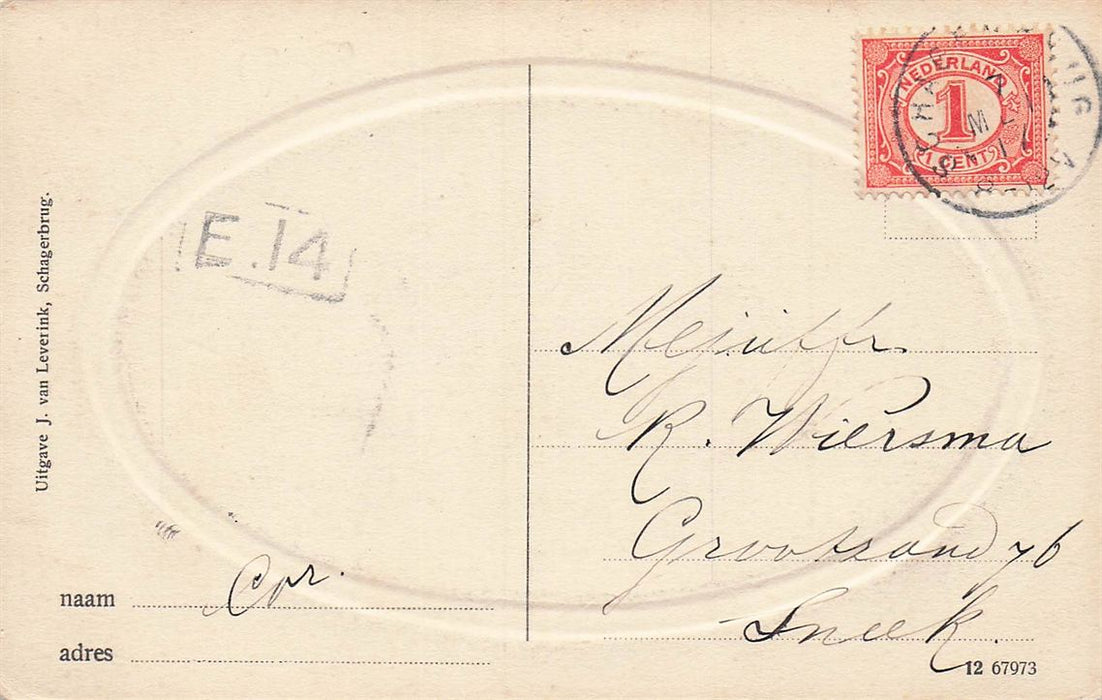 NEDERLAND
1
CENT
E.14
Uitgave J. van Leverink, Schagerbrug.
Mejuffr
R. Wiersma
Grootzand 76
Sneek.
naam Cor.
adres
12 67973